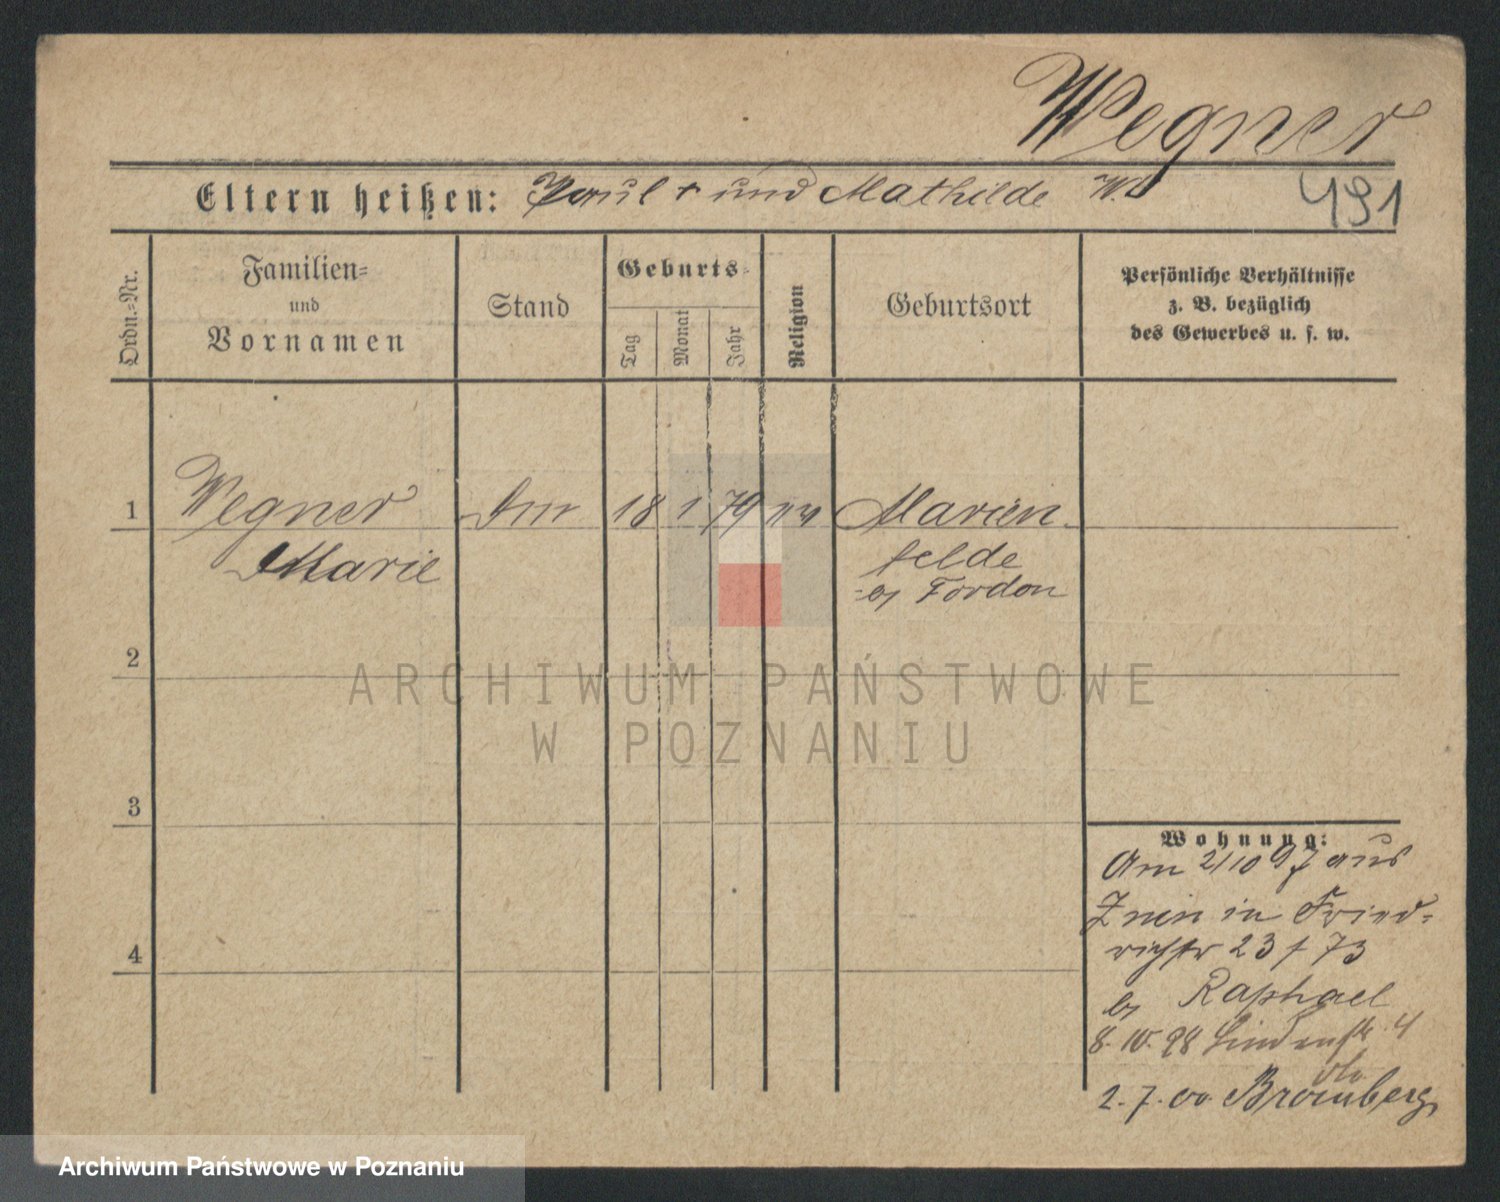 Wegner
Eltern heißen: Paul † und Mathilde W.
491
Ordn.=Nr.
Familien=
und
Vornamen
Stand
Geburts=
Tag
Monat
Jahr
Religion
Geburtsort
Persönliche Verhältnisse
z. B. bezüglich
des Gewerbes u. s. w.
1
Wegner
18
1
79
Marien
Marie
felde
b/ Fordon
2
3
4
Wohnung:
Am 2/10 97 aus
Znin in Fried=
richstr 23
b/ Raphael
8. 10. 98 Lindenstr 4
2. 7. 00 Bromberg
ARCHIWUM PAŃSTWOWE
W POZNANIU
Archiwum Państwowe w Poznaniu